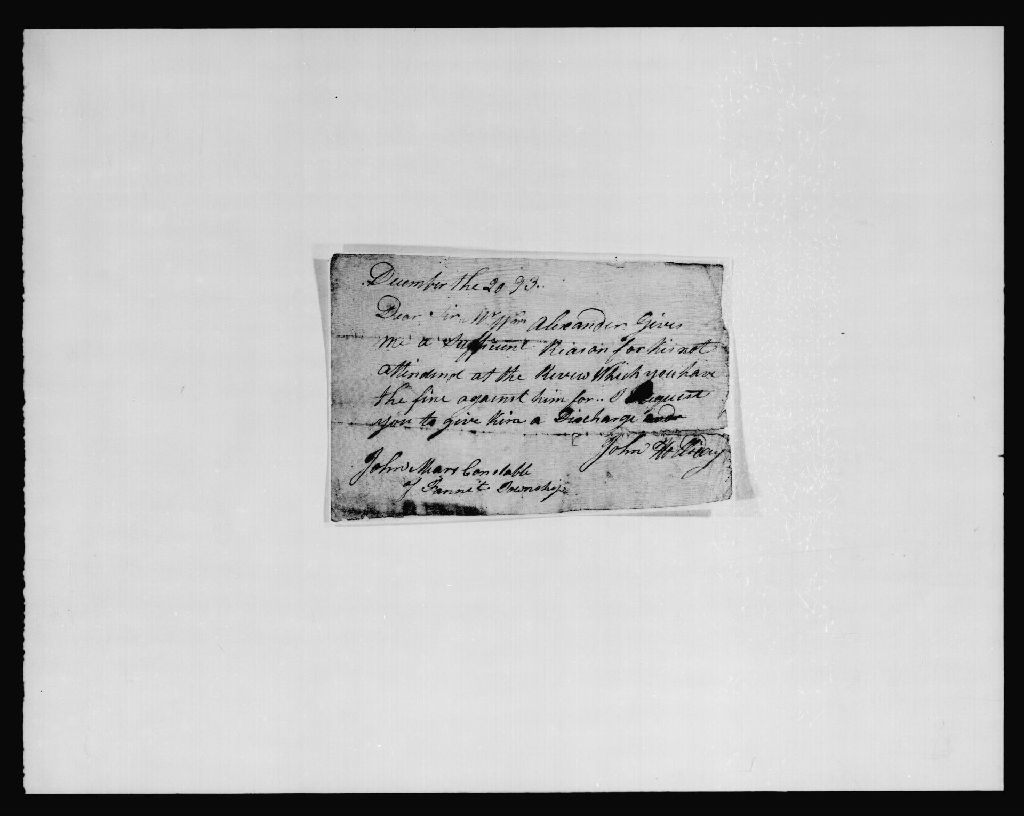 December the 20 93.
Dear Sir Mr Wm Alexander Gives
me a Sufficient Reason for his not
attendend at the Review Which you have
the fine against him for.. I Request
you to give him a Discharge and
John
John Mars Constable
of Fannit Township